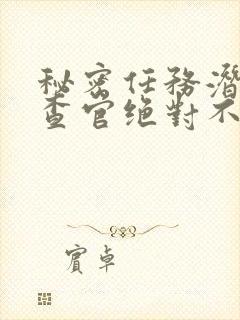 秘密任務潛
查官绝對不
賓卓